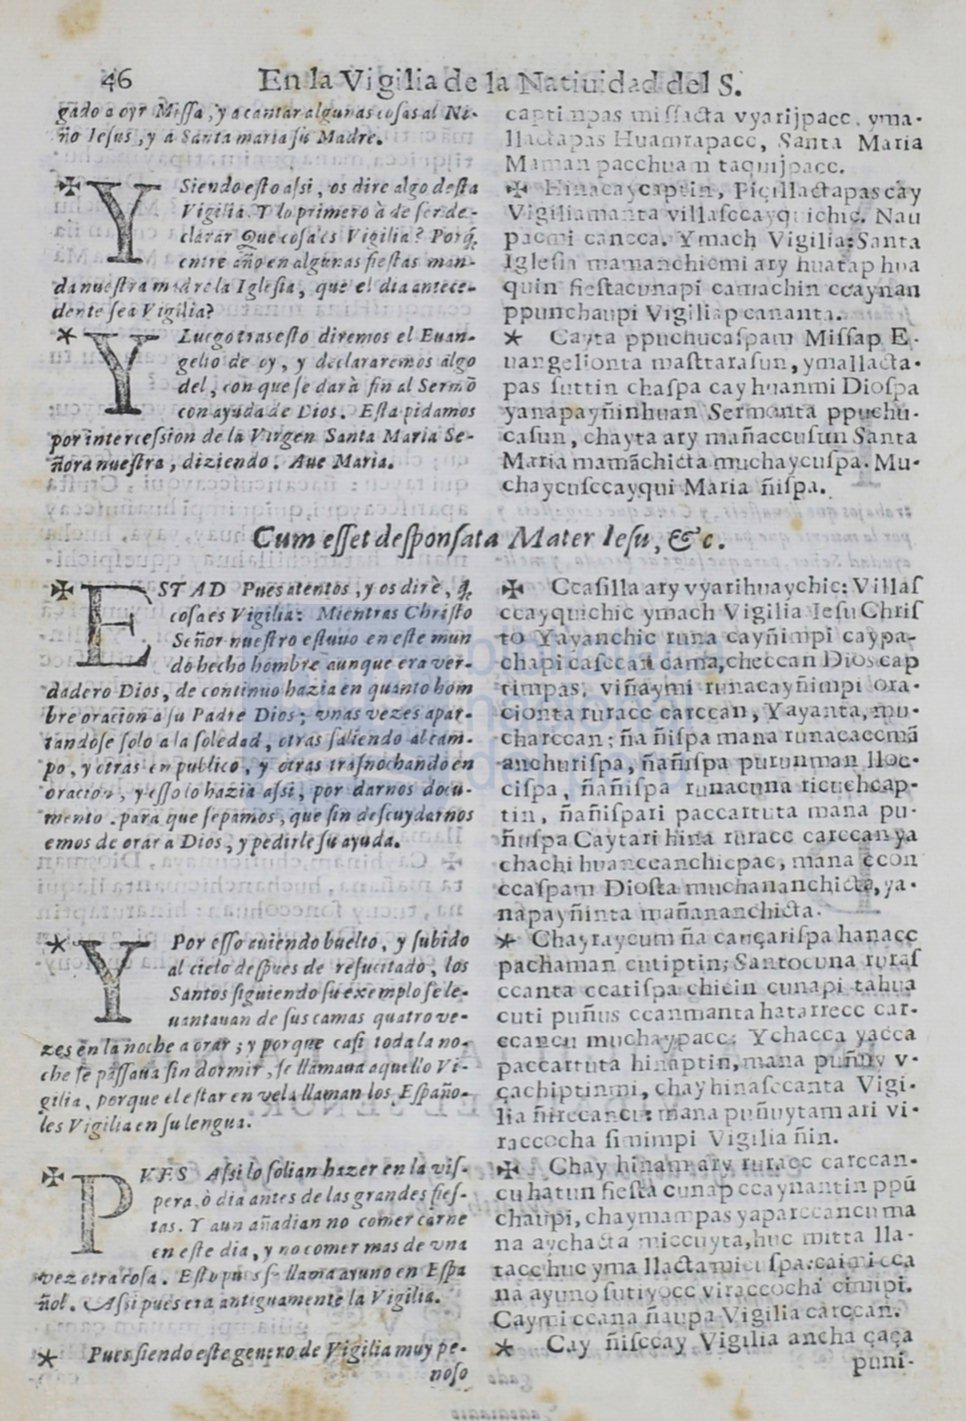 46 En la Vigilia de la Natiuidad del S.
gado a oyr Missa, y a cantar algunas cosas al Ni-
ño Iesus, y a Santa maria su Madre.
✠ Y Siendo esto assi, os dire algo desta
Vigilia. Y lo primero à de ser de-
clarar Que cosa es Vigilia? Porq̃
entre año en algunas fiestas man-
da nuestra madre la Iglesia, que el dia antece-
dente sea Vigilia?
* Y Luego tras esto diremos el Euan-
gelio de oy, y declararemos algo
del, con que se darà fin al Sermõ
con ayuda de Dios. Esta pidamos
por intercession de la Virgen Santa Maria Se-
ñora nuestra, diziendo. Aue Maria.
captinpas missacta vyarijpacc, yma-
llactapas Huamrapacc, Santa Maria
Maman pacchuan taquijpacc.
✠ Hinacaycaptin, Piçillactapas cay
Vigiliamanta villasccayquichic. Ñau
pacmi cancca. Ymach Vigilia: Santa
Iglesia mamanchicmi ary huatap hua
quin fiestacunapi camachin ccaynan
ppunchaupi Vigiliap cananta.
* Cayta ppuchucaspam Missap E-
uangelionta masttarasun, ymallacta-
pas suttin chaspa cay huanmi Diospa
yanapayñinhuan Sermonta ppuchu-
casun, chayta ary mañaccusun Santa
Maria mamãchicta muchaycuspa. Mu-
chaycusccayqui Maria ñispa.
Cum esset desponsata Mater Iesu, &c.
✠ ESTAD Pues atentos, y os dirè, q̃
cosa es Vigilia: Mientras Christo
Señor nuestro estuuo en este mun
do hecho hombre aunque era ver-
dadero Dios, de continuo hazia en quanto hom
bre oracion a su Padre Dios; vnas vezes apar-
tandose solo a la soledad, otras saliendo al cam-
po, y otras en publico, y otras trasnochando en
oracion, y esso lo hazia assi, por darnos docu-
mento. para que sepamos, que sin descuydarnos
emos de orar a Dios, y pedirle su ayuda.
* Y Por esso auiendo buelto, y subido
al cielo despues de resucitado, los
Santos siguiendo su exemplo se le-
uantauan de sus camas quatro ve-
zes en la noche a orar; y porque casi toda la no-
che se passaua sin dormir, se llamaua aquello Vi-
gilia, porque el estar en vela llaman los Españo-
les Vigilia en su lengua.
✠ PVES Assi lo solian hazer en la vis-
pera, ò dia antes de las grandes fies-
tas. Y aun añadian no comer carne
en este dia, y no comer mas de vna
vez otra cosa. Esto pues se llama ayuno en Espa
ñol. Assi pues era antiguamente la Vigilia.
* Pues siendo este genero de Vigilia muy pe-
noso
✠ Ccasilla ary vyarihuaychic: Villas
ccayquichic ymach Vigilia Iesu Chris
to Yayanchic runa cayñimpi caypa-
chapi cascan cama, checcan Dios cap
timpas, viñaymi runacayñimpi ora-
cionta ruracc carccan, Yayanta, mu-
charccan; ña ñispa mana runacaccmã
anchurispa, ñañispa purunman lloc-
cispa, ñañispa runacuna ricuchcap-
tin, ñañispari paccartuta mana pu-
ñuspa Caytari hina ruracc carccan ya
chachi huanccanchicpac, mana ccon
ccaspam Diosta muchananchicta, ya-
napayñinta mañananchicta.
* Chayraycum ña cauçarispa hanacc
pachaman cutiptin; Santocuna ruras
ccanta ccatispa chicin cunapi tahua
cuti puñus ccanmanta hatarrecc car-
ccancu muchaypacc: Ychacca yacca
paccartuta hinaptin, mana puñuy v-
çachiptinmi, chay hinasccanta Vigi-
lia ñirccancu: mana puñuytam ari vi-
raccocha siminpi Vigilia ñin.
✠ Chay hinam ary ruracc carccan-
cu hatun fiesta cunap ccaynantin ppũ
chaupi, chaymampas yaparccancu ma
na aychacta miccuyta, huc mitta lla-
tacc huc yma llacta
na ayuno sutiyocc viraccocha cimipi.
Caymi ccana ñaupa Vigilia carccan.
* Cay ñisccay Vigilia ancha çaça
puni-